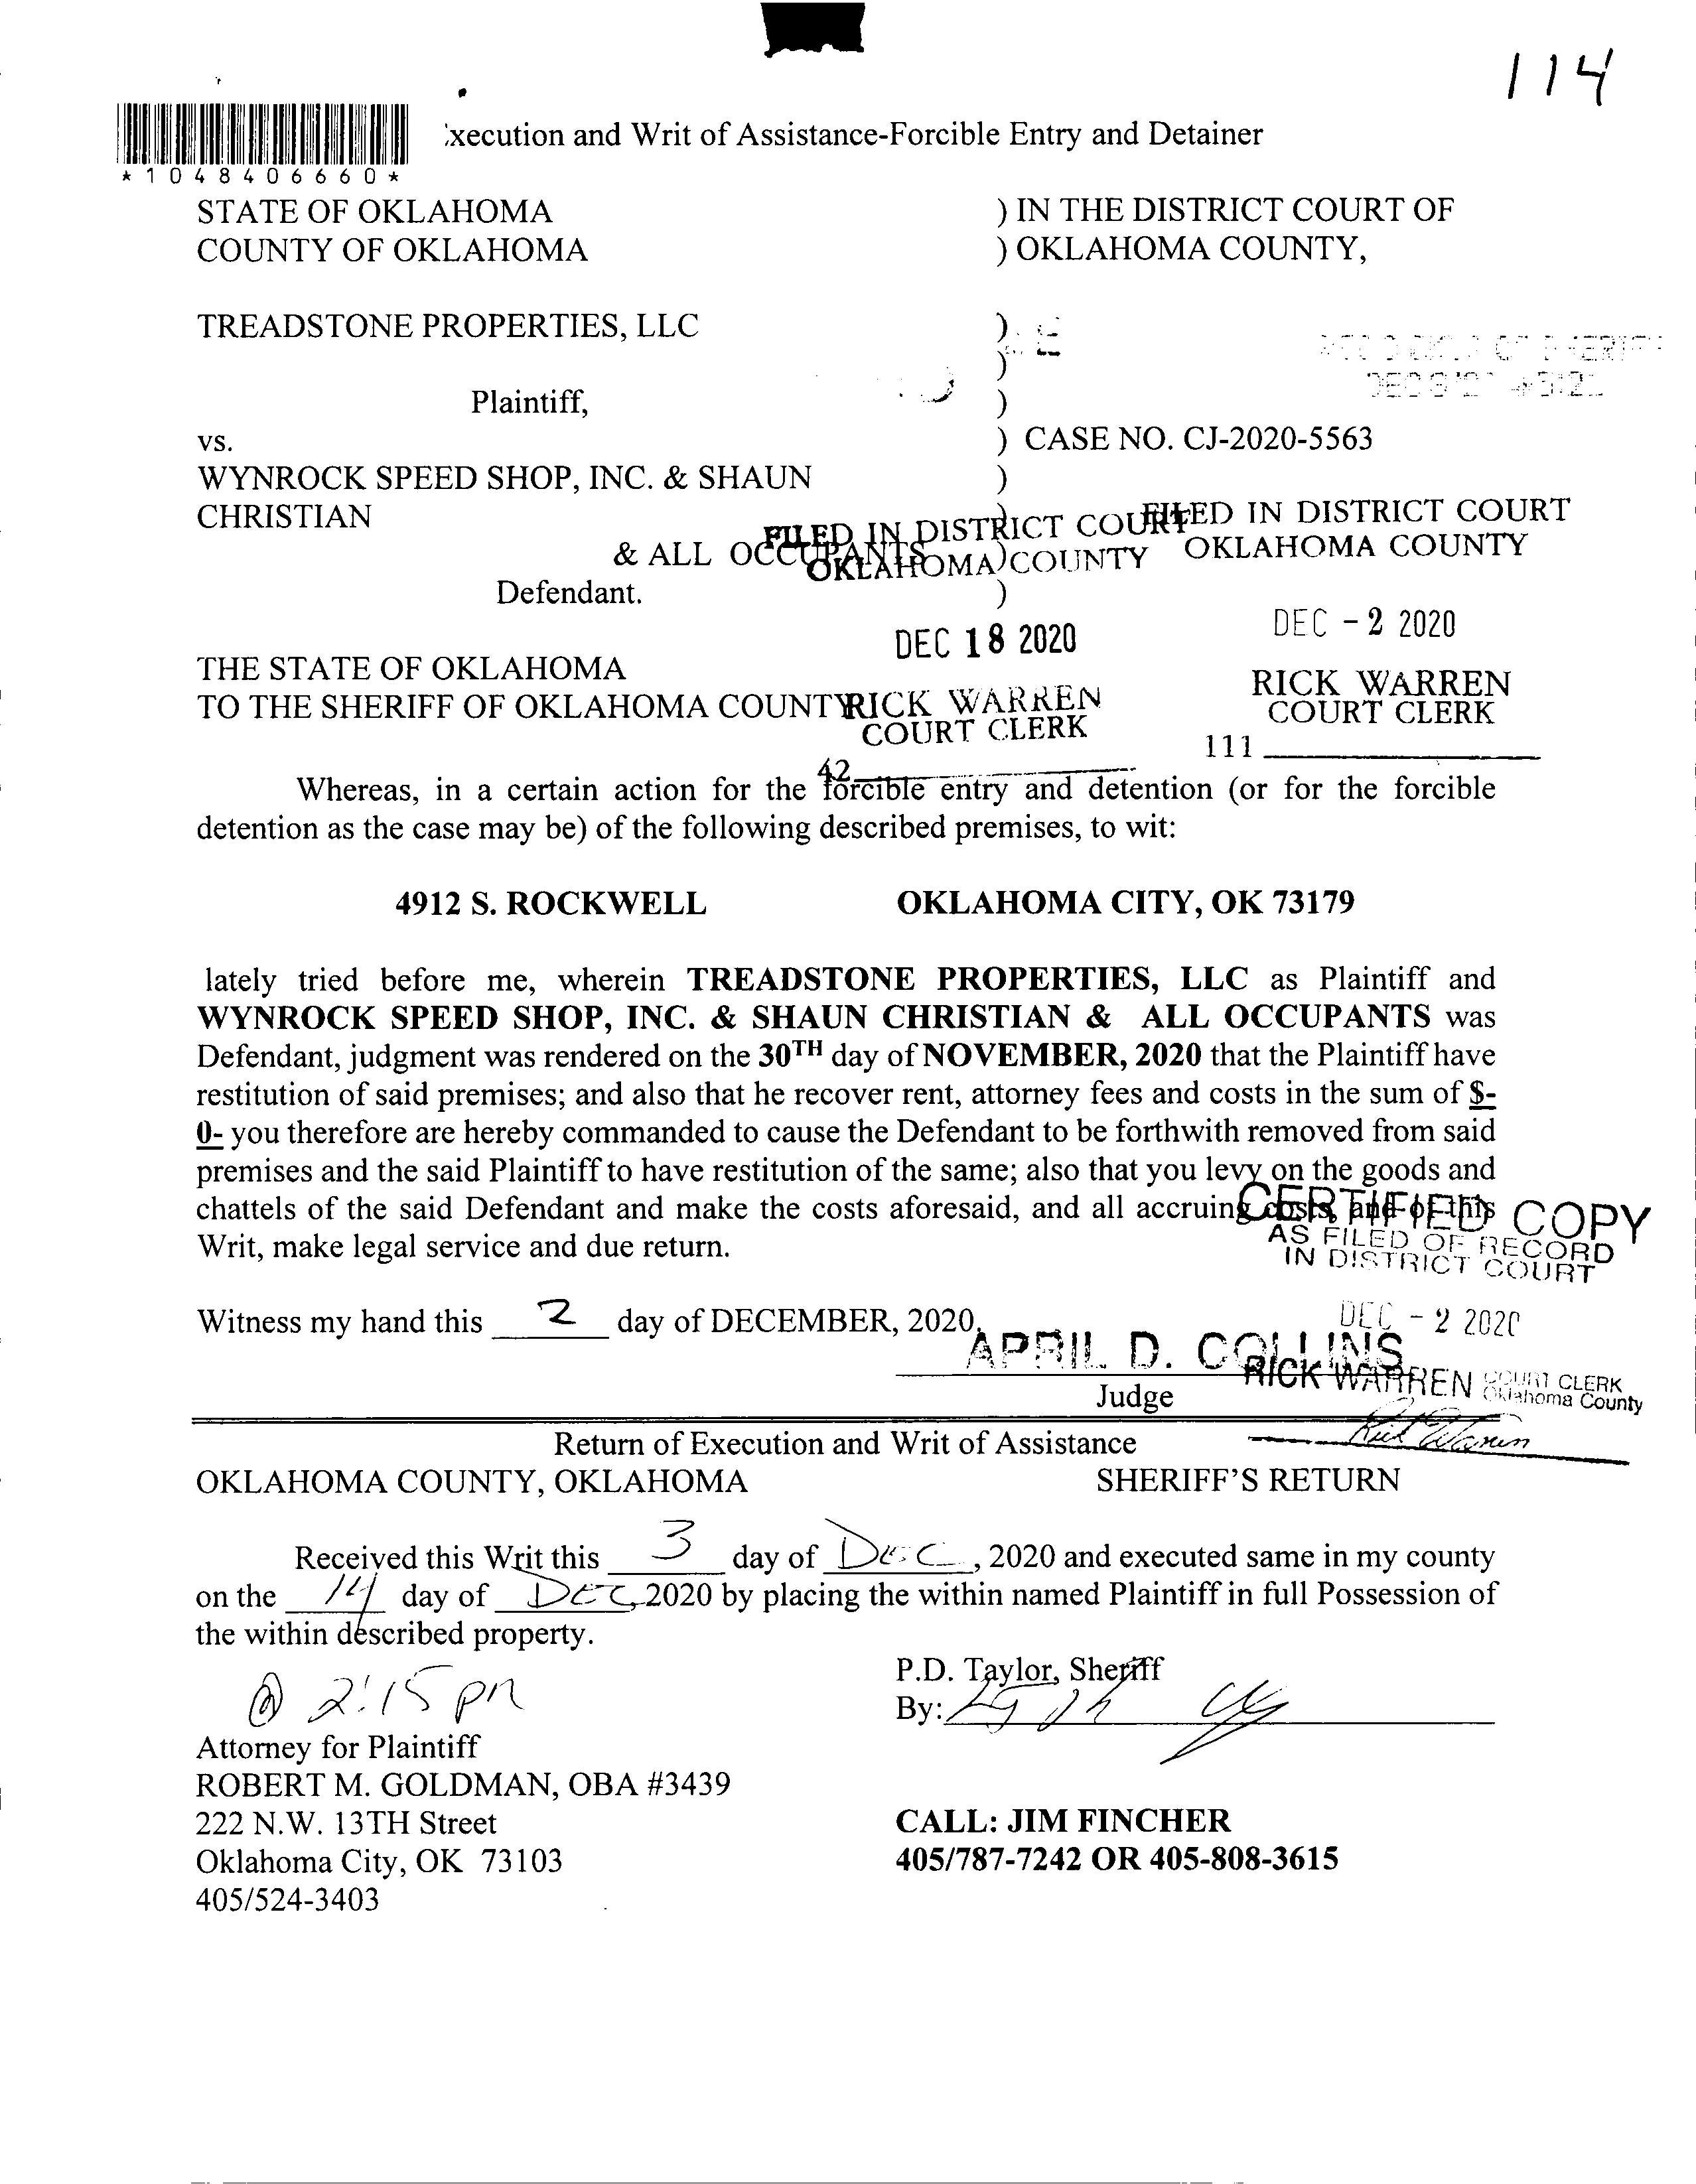 114
xecution and Writ of Assistance-Forcible Entry and Detainer
*1048406660*
STATE OF OKLAHOMA ) IN THE DISTRICT COURT OF
COUNTY OF OKLAHOMA ) OKLAHOMA COUNTY,
TREADSTONE PROPERTIES, LLC )
)
Plaintiff, )
vs. ) CASE NO. CJ-2020-5563
WYNROCK SPEED SHOP, INC. & SHAUN )
CHRISTIAN )
& ALL OCCUPANTS )
Defendant. )
FILED IN DISTRICT COURT
OKLAHOMA COUNTY
DEC 18 2020
RICK WARREN
COURT CLERK
42
FILED IN DISTRICT COURT
OKLAHOMA COUNTY
DEC - 2 2020
RICK WARREN
COURT CLERK
111
THE STATE OF OKLAHOMA
TO THE SHERIFF OF OKLAHOMA COUNTY
Whereas, in a certain action for the forcible entry and detention (or for the forcible
detention as the case may be) of the following described premises, to wit:
4912 S. ROCKWELL OKLAHOMA CITY, OK 73179
lately tried before me, wherein TREADSTONE PROPERTIES, LLC as Plaintiff and
WYNROCK SPEED SHOP, INC. & SHAUN CHRISTIAN & ALL OCCUPANTS was
Defendant, judgment was rendered on the 30TH day of NOVEMBER, 2020 that the Plaintiff have
restitution of said premises; and also that he recover rent, attorney fees and costs in the sum of $-
0- you therefore are hereby commanded to cause the Defendant to be forthwith removed from said
premises and the said Plaintiff to have restitution of the same; also that you levy on the goods and
chattels of the said Defendant and make the costs aforesaid, and all accruing costs, and of this
Writ, make legal service and due return.
CERTIFIED COPY
AS FILED OF RECORD
IN DISTRICT COURT
DEC - 2 2020
RICK WARREN COURT CLERK
Oklahoma County
Rick Warren
Witness my hand this 2 day of DECEMBER, 2020.
APRIL D. COLLINS
Judge
Return of Execution and Writ of Assistance
OKLAHOMA COUNTY, OKLAHOMA SHERIFF'S RETURN
Received this Writ this 3 day of DEC, 2020 and executed same in my county
on the 14 day of DEC, 2020 by placing the within named Plaintiff in full Possession of
the within described property.
@ 2:15 pm
P.D. Taylor, Sheriff
By:
Attorney for Plaintiff
ROBERT M. GOLDMAN, OBA #3439
222 N.W. 13TH Street
Oklahoma City, OK 73103
405/524-3403
CALL: JIM FINCHER
405/787-7242 OR 405-808-3615